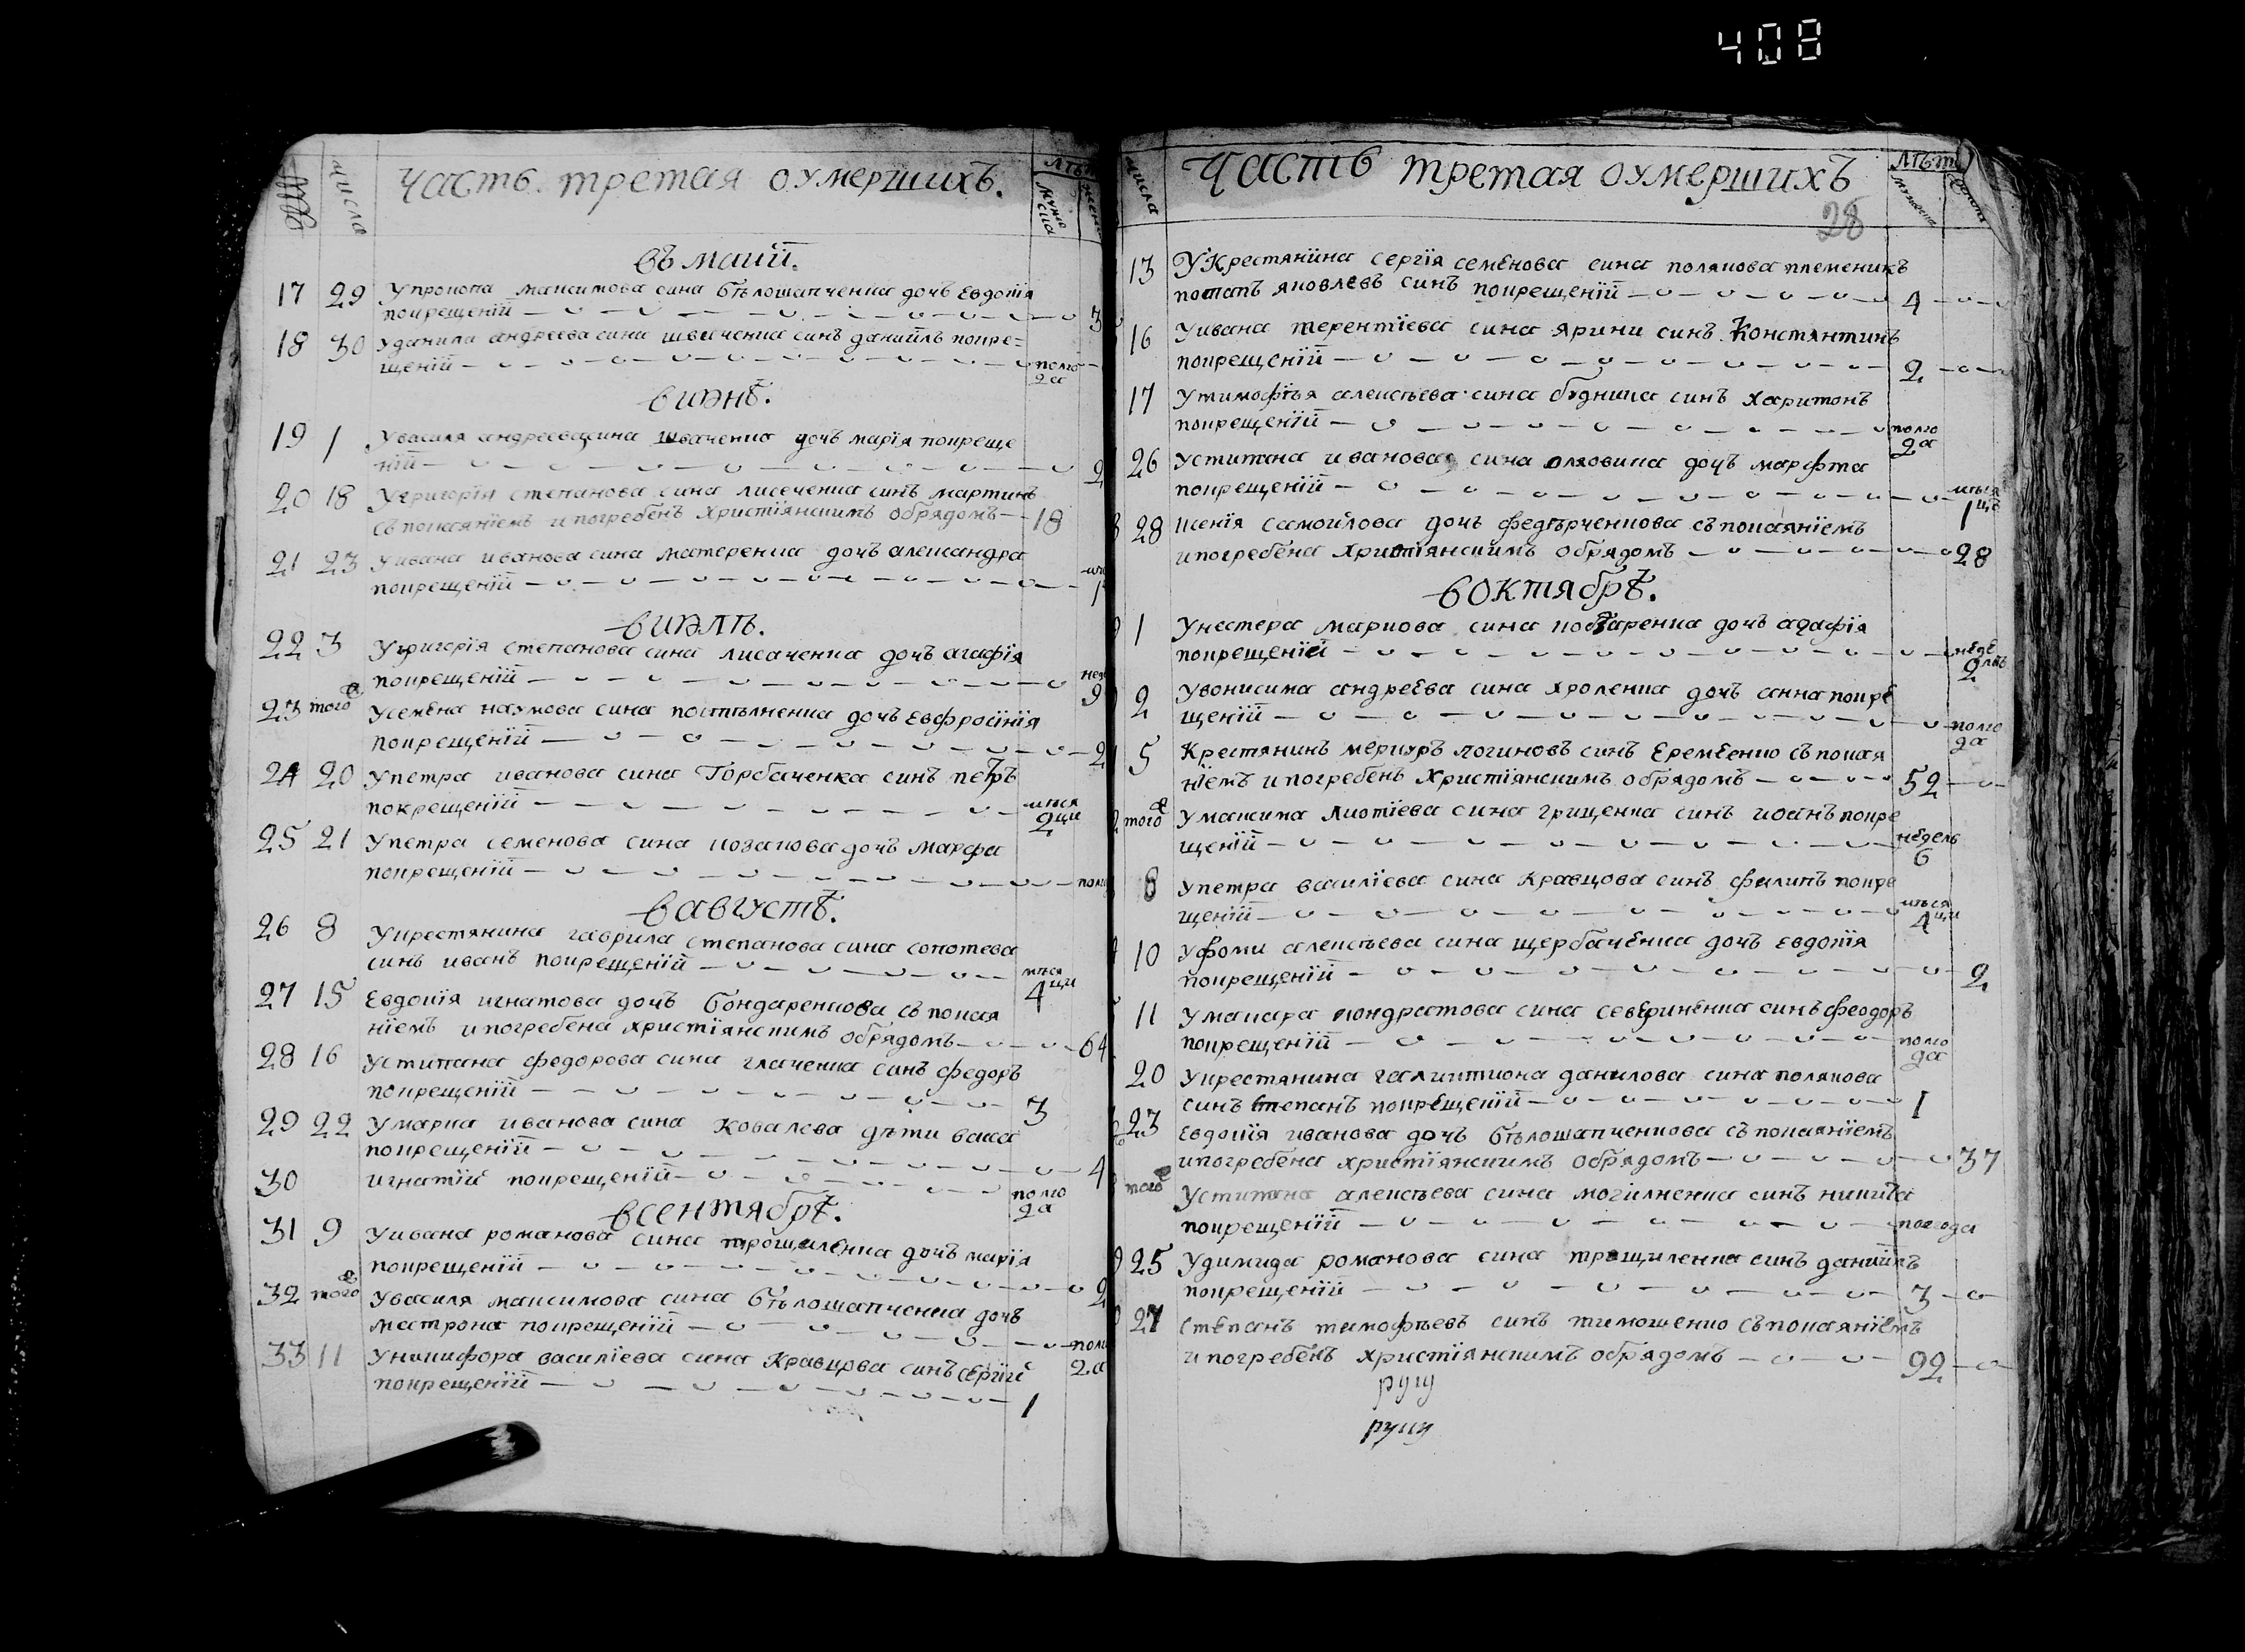 408
числа
Часть третая оумершихъ.
лѣт
мужеска
въ маий.
17 29 У прокопа максимова сина бѣлошапченка дочъ Евдокія
покрещеніи 3
18 30 У данила андреева сина швачненка синъ даниілъ покре=
щеніи полго
да
в июнѣ.
19 1 У василя андреева сина швачненка дочъ марія покреще
ніи 2
20 18 У григорія степанова сина лисеченка синъ мартинъ
съ покаяніемъ и погребенъ христіянскимъ обрядомъ 18
21 23 У ивана иванова сина матеренка дочъ александра
покрещеніи 1
в июлѣ.
22 3 У григорія степанова сина лисаченка дочъ агафія
покрещеніи неде
9
23 того У семена наумова сина постѣлненка дочъ евфросинія
покрещеніи 2
24 20 У петра иванова сина Горбаченка синъ петръ
покрещеніи мѣся
2 ци
25 21 У петра семенова сина козакова дочъ марфа
покрещеніи полго
в августѣ.
26 8 У крестянина гаврила степанова сина сопотева
синъ иванъ покрещеніи мѣся
4 ци
27 15 Евдокія игнатова дочъ бондаренкова съ покая
ніемъ и погребена христіянскимъ обрядомъ 64
28 16 У стипана федорова сина глаченка синъ федоръ
покрещеніи 3
29 22 У марка иванова сина Ковалева дѣти васса
покрещеніи 4
30 игнатій покрещеніи полго
да
в сентябрѣ.
31 9 У ивана романова сина трощиленка дочъ марія
покрещеніи 2
32 того У василя максимова сина бѣлошапченка дочъ
матрона покрещеніи полго
да
33 11 У никифора василіева сина Кравцова синъ сергій
покрещеніи 1
числа
Часть третая оумершихъ
лѣт
мужеска
28
13 У Крестянина сергія семенова сина полякова племеникъ
потапъ яковлевъ синъ покрещеніи 4
16 У ивана терентіева сина ярини синъ Константинъ
покрещеніи 2
17 У тимофѣя алексѣева сина будника синъ харитонъ
покрещеніи полго
да
26 У стипана иванова сина оляовика дочъ марфта
покрещеніи мѣся
1 ць
28 Ксенія самоілова дочъ федѣрченкова съ покаяніемъ
и погребена христіянскимъ обрядомъ 28
в октябрѣ.
1 У нестера маркова сина дочъ агафія
покрещеніи неде
2 лѣ
2 У вонисима андреева сина хроленка дочъ анна покре
щеніи полго
да
5 Крестянинъ меркуръ логиновъ синъ Еремеенко съ покая
ніемъ и погребенъ христіянскимъ обрядомъ 52
того У максима лиотіева сина грищенка синъ иоанъ покре
щеніи недель
6
8 У петра василіева сина Кравцова синъ филипъ покре
щеніи мѣся
4 ци
10 У фоми алексѣева сина щербаченка дочъ евдокія
покрещеніи 2
11 У макара кондратова сина северинёнка синъ феодоръ
покрещеніи полго
да
20 У крестянина галиктиона данилова сина полякова
синъ степанъ покрещеніи 1
23 Евдокія иванова дочъ бѣлошапченкова съ покаяніемъ
и погребена христіянскимъ обрядомъ 37
того У стипана алексѣева сина могілненка синъ никита
покрещеніи полгода
25 У димида романова сина трощиленка синъ даниілъ
покрещеніи 3
27 Степанъ тимофѣевъ синъ тимошенко съ покаяніемъ
и погребенъ христіянскимъ обрядомъ 92
руку
руку